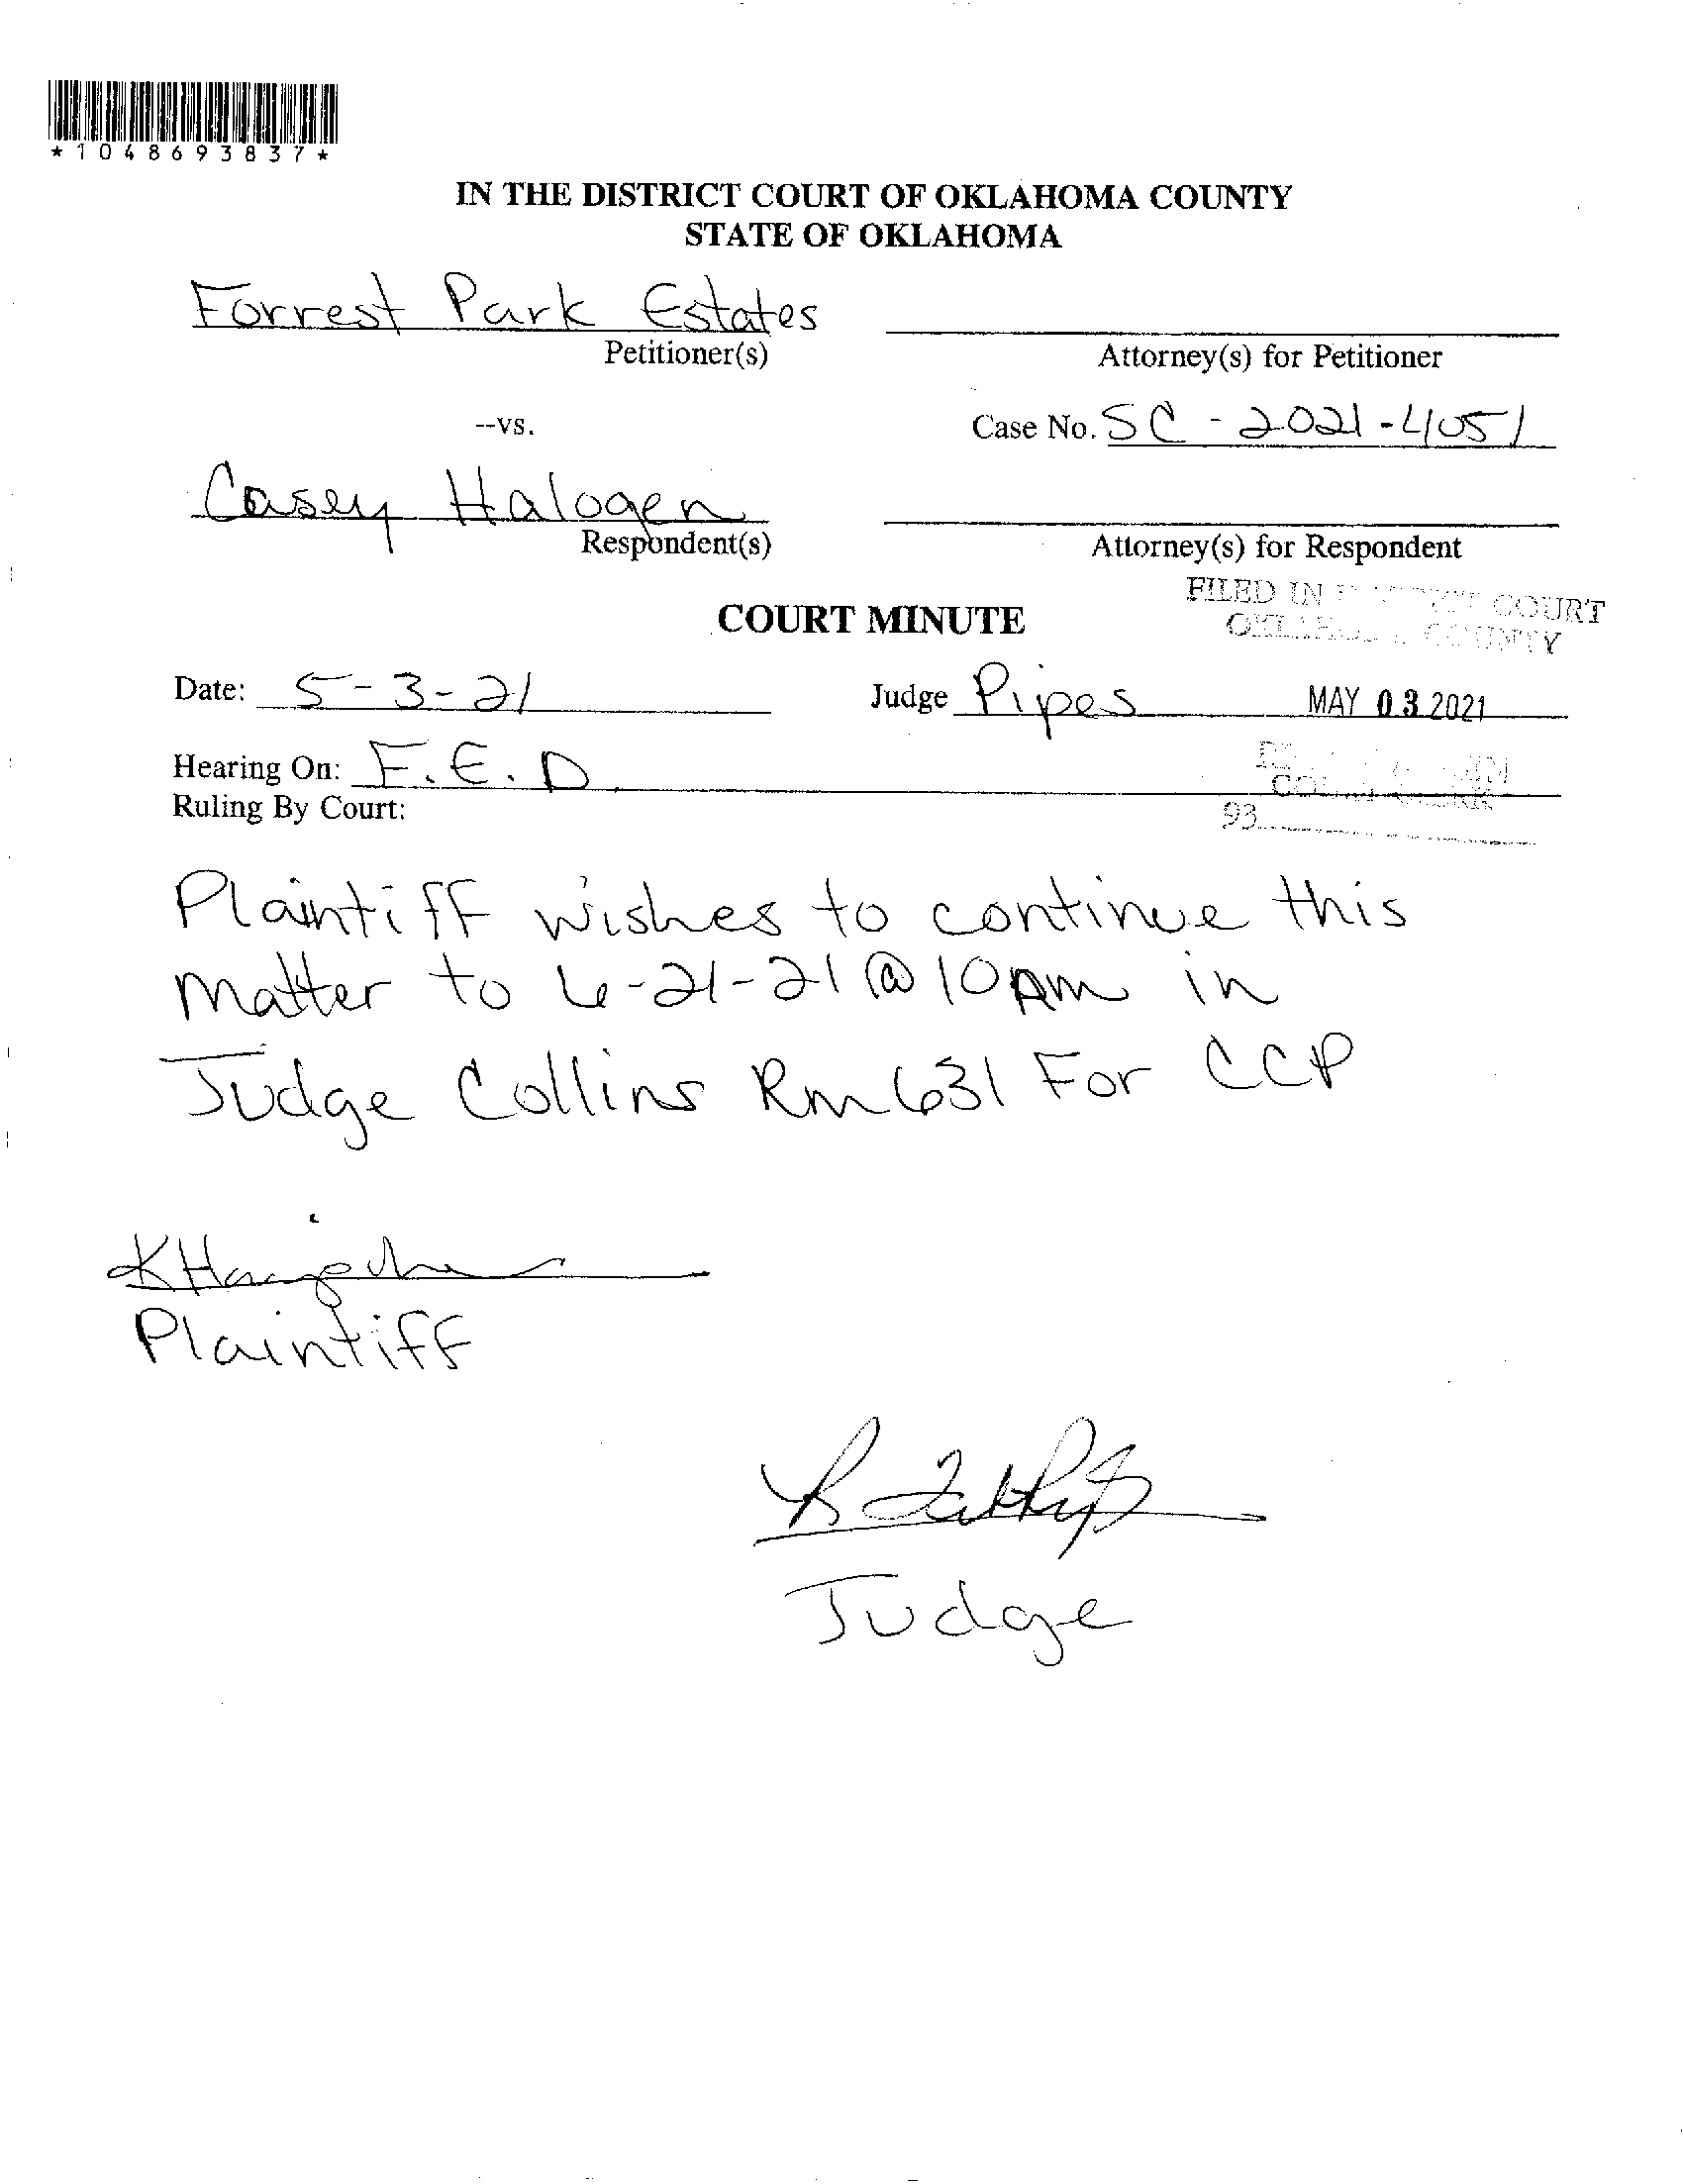 *1048693837*
IN THE DISTRICT COURT OF OKLAHOMA COUNTY
STATE OF OKLAHOMA
Forrest Park Estates
Petitioner(s)
Attorney(s) for Petitioner
--vs.
Case No. SC-2021-4051
Casey Halogen
Respondent(s)
Attorney(s) for Respondent
FILED IN COURT
COUNTY
COURT MINUTE
Date: 5-3-21
Judge Pipes
MAY 03 2021
Hearing On: F.E.D.
Ruling By Court:
93
Plaintiff wishes to continue this
matter to 6-21-21 @ 10 Am in
Judge Collins Rm 631 For CCP
Plaintiff
Judge